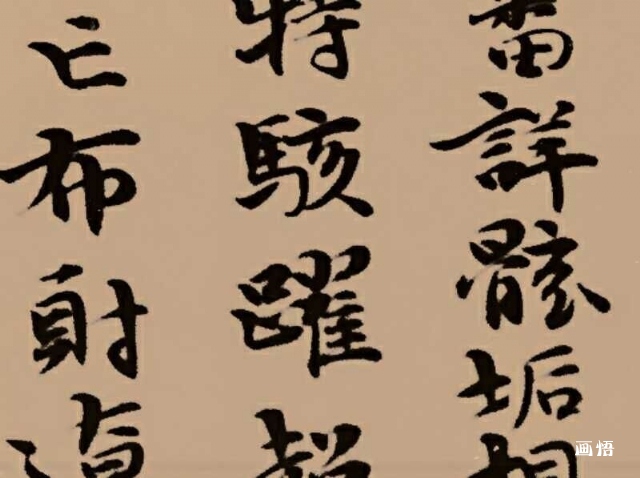 詳骸垢
特駭躍
亡布射
画悟